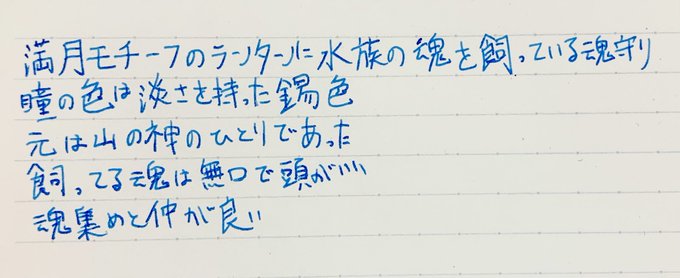 満月モチーフのランタンに水族の魂を飼っている魂守り
瞳の色は淡さを持った錫色
元は山の神のひとりであった
飼ってる魂は無口で頭がいい
魂集めと仲が良い